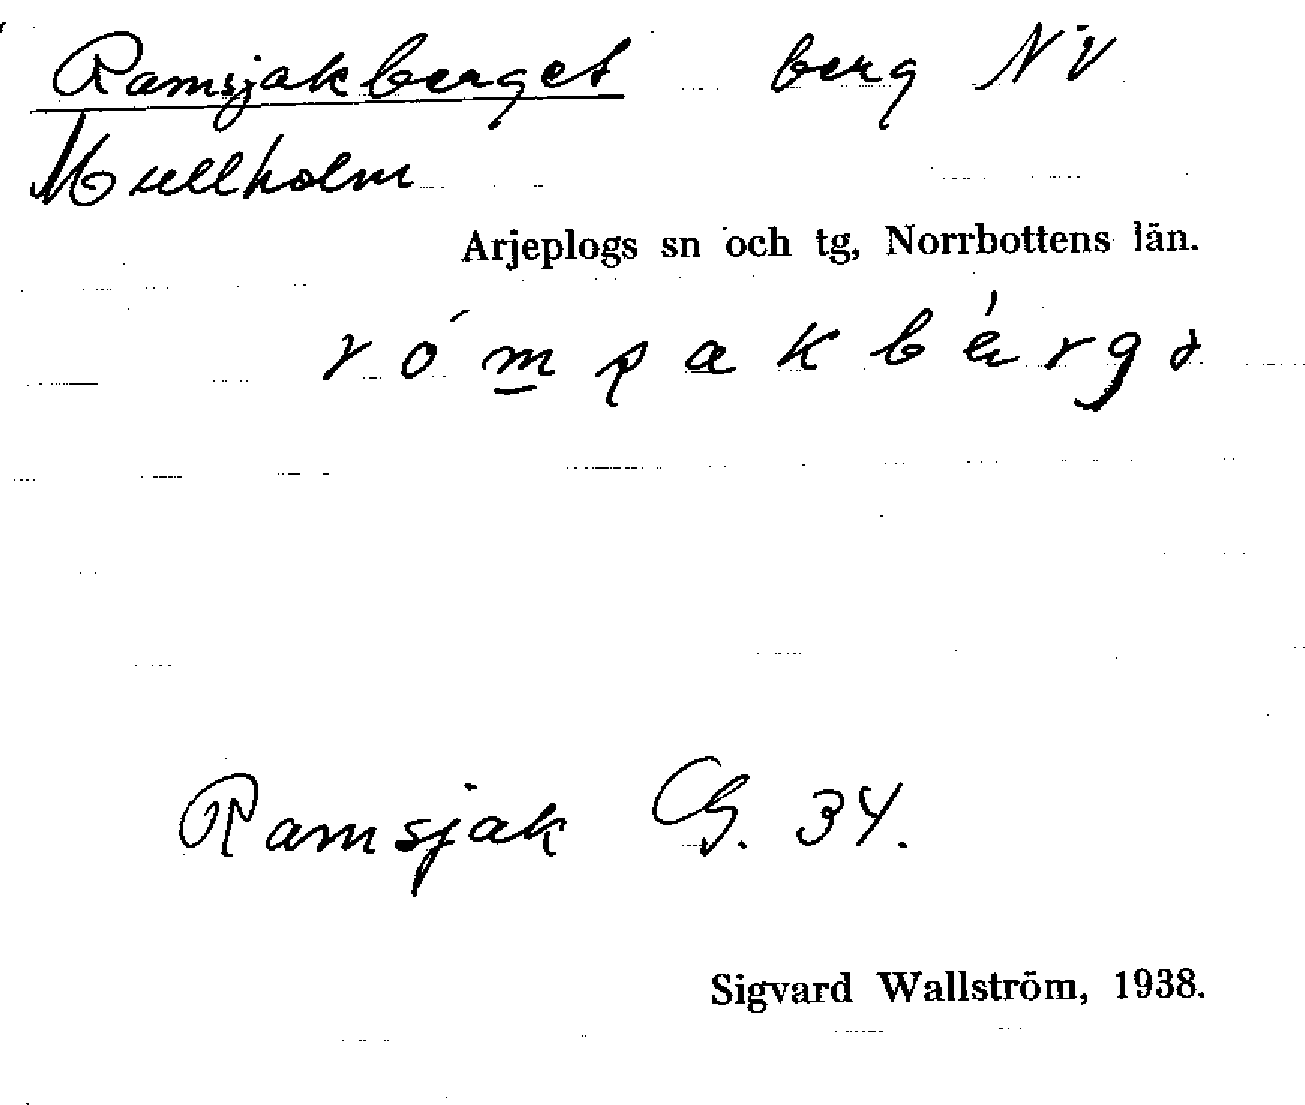 Ramsjakberget berg NV
Mullholm
Arjeplogs sn och tg, Norrbottens län.
Ramsjak G. 34.
Sigvard Wallström, 1938.